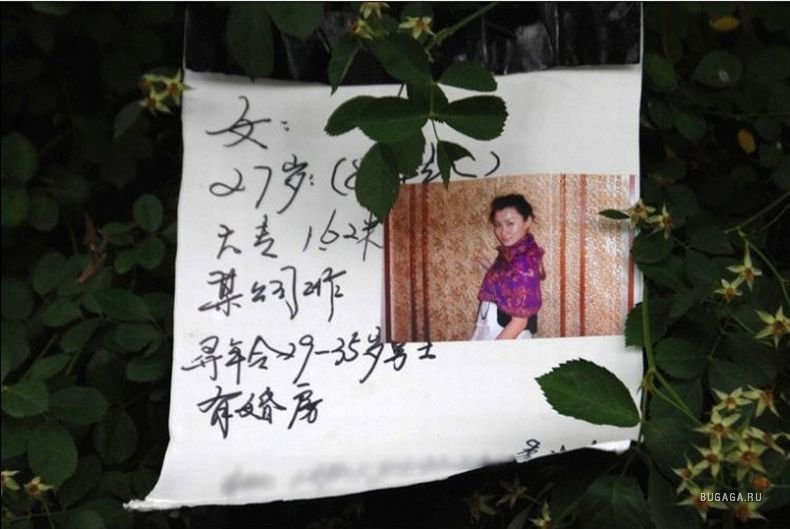 女：
27岁：（8
大专 1.62米
某公司工作
寻年令29-35岁男士
有婚房
BUGAGA.RU